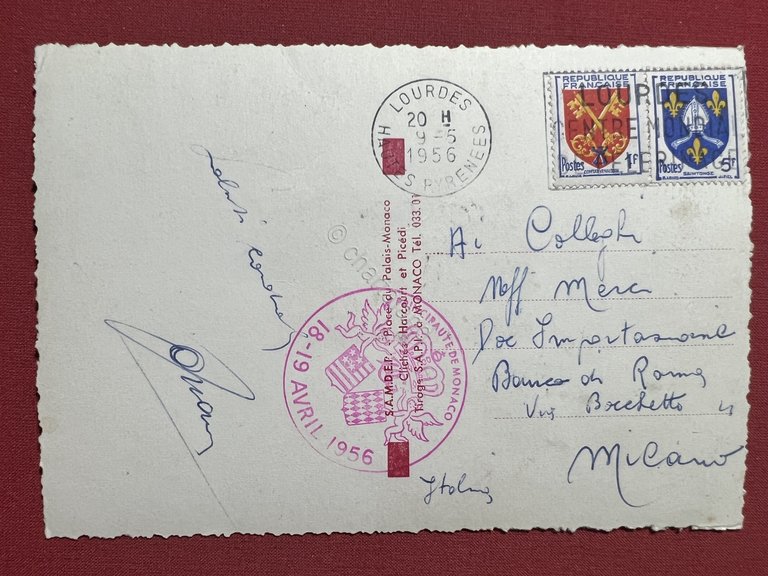 LOURDES
20 H
9-5
1956
PYRENEES
REPUBLIQUE
FRANÇAISE
Postes
1F
COMTAT VENAISSIN
REPUBLIQUE
FRANÇAISE
Postes
5F
SAINTONGE
LOURDES
CENTRE MONDIAL
PELERINAGE
S.A.M.D.E.P. Place du Palais-Monaco
Clichés Harcourt et Picédi
Tirage S.A.P.I. à MONACO Tél. 033.01
PRINCIPAUTÉ DE MONACO
18-19 AVRIL 1956
Saluti cordiali
Ai Colleghi
Merci
Doc Importazione
Banco di Roma
Via Bocchetto
Milano
Italia